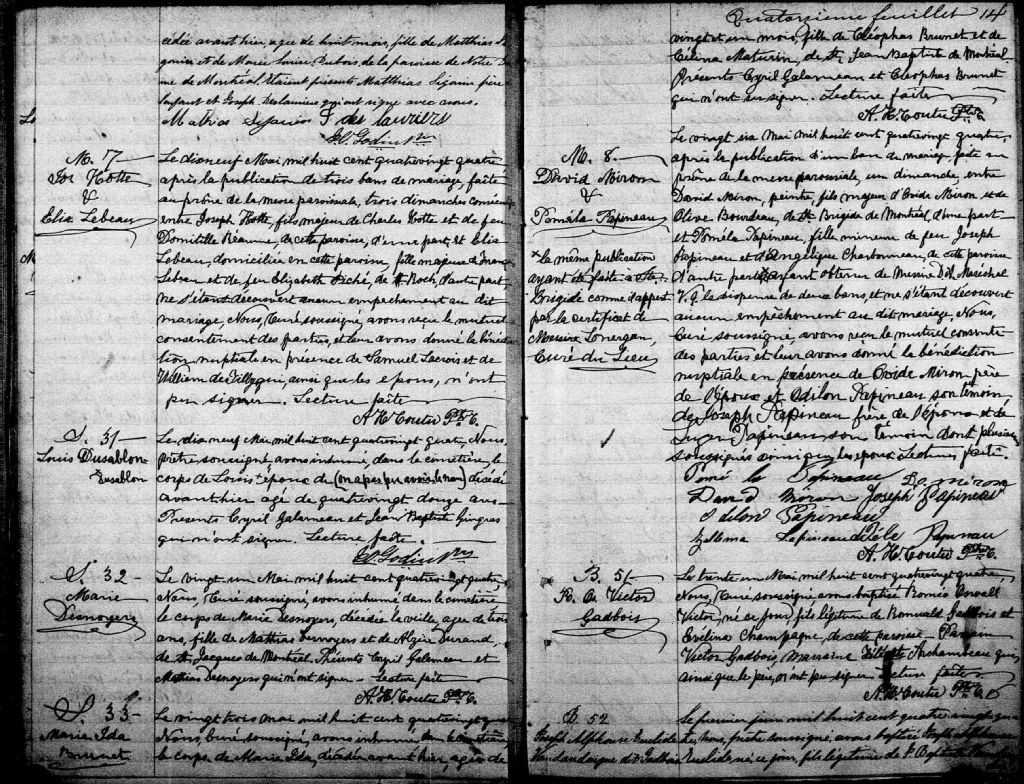 cédée avant hier, agée de huit mois, fille de Matthias
et de Marie Louise Dubois, de la paroisse de Notre Da
me de Montréal Etaient présents Matthias père
de l'enfant et Joseph Deslauriers qui ont signé avec nous.
Mathias J des lauriers
M. 7
Jos Hotte
&
Eliz Lebeau
Le dixneuf Mai mil huit cent quatrevingt quatre
après la publication de trois bans de mariage, faite
au prône de la messe paroissiale, trois dimanches
entre Joseph Hotte, fils majeur de Charles Hotte et de feu
Domitille Reaume, de cette paroisse, d'une part, et Eliz
Lebeau, domiciliée en cette paroisse, fille majeure de
Lebeau et de feu Elizabeth Piché, de St Roch, d'autre part,
ne s'étant découvert aucun empechement au dit
mariage, Nous, Curé soussigné, avons reçu le mutuel
consentement des parties, et leur avons donné la bénédic
tion nuptiale en présence de Samuel Lacroix et de
William de ainsi que les epoux, n'ont
pu signer. Lecture faite
A. H. Coutu Ptre C.
S. 31
Louis Dusablon
Dusablon
Le dixneuf Mai mil huit cent quatrevingt quatre, Nous,
Prêtre soussigné avons inhumé, dans le cimetière, le
corps de Louis époux de (on a pas pu avoir le nom) décédé
avant hier agé de quatrevingt douze ans
Présents Cyril Galarneau et Jean Baptiste Gingras
qui n'ont signer. Lecture faite.
S. 32
Marie
Desnoyers
Le vingt un Mai mil huit cent quatrevingt quatre,
Nous, Curé soussigné, avons inhumé dans le cimetière
le corps de Marie Desnoyers, décédée la veille, agée de trois
ans, fille de Mathias Desnoyers et de Alzire Durand,
de St Jacques de Montréal. Présents Cyril Galarneau et
Mathias Desnoyers qui n'ont signer. Lecture faite
A. H. Coutu Ptre C.
S. 33
Marie Ida
Brunet
Le vingt trois Mai mil huit cent quatrevingt quatre
Nous, Curé soussigné, avons inhumé, dans le cimetière,
le corps de Marie Ida, décédée avant hier, agée de
Quatorzieme feuillet 14
vingt et un mois, fille de Cléophas Brunet et de
Célina Maturin, de St Jean Baptiste de Montréal
Présents Cyril Galarneau et Cleophas Brunet
qui n'ont su signer. Lecture faite
A. H. Coutu Ptre C.
M. 8.
David Miron
&
Poméla Papineau
x la même publication
ayant été faite à Ste
Brigide comme d'appert
par le certificat de
Messire Lonergan,
Curé du Lieu
Le vingt six Mai mil huit cent quatrevingt quatre
après la publication d'un ban de mariage, faite au
prône de la messe paroissiale, un dimanche, entre
David Miron, peintre, fils majeur d'Ovide Miron et de
Olive Bourdeau, de Ste Brigide de Montréal, d'une part
et Poméla Papineau, fille mineure de feu Joseph
Papineau et d'Angelique Charbonneau, de cette paroisse
d'autre part ayant obtenu de Messire Maréchal
V. G. la dispense de deux bans, et ne s'étant découvert
aucun empêchement au dit mariage, Nous,
Curé soussigné, avons reçu le mutuel consente
des parties et leur avons donné la bénédiction
nuptiale en présence de Ovide Miron père
de l'époux et Odilon Papineau son témoin,
de Joseph Papineau frère de l'épouse et de
Papineau son témoin dont plusieurs
soussignés ainsi que les époux Lecture faite.
Papineau miron
David Miron Joseph Papineau
Odilon Papineau
Zelima Papineau Papineau
A. H. Coutu Ptre C.
B. 51
R. O. Victor
Gadbois
Le trente un Mai mil huit cent quatrevingt quatre,
Nous, Curé soussigné avons baptisé Roméo
Victor, né ce jour, fils légitime de Romuald Gadbois et
Evelina Champagne, de cette paroisse Parrain
Victor Gadbois, Marraine Archambeau qui,
ainsi que le père, n'ont pu signer. Lecture faite
A. H. Coutu Ptre C.
B. 52
Joseph Alphonse Euclide
Le premier juin mil huit cent quatre vingt quatre
nous, prêtre soussigné, avons baptisé Joseph Alphonse
Euclide né ce jour, fils légitime de J. Baptiste